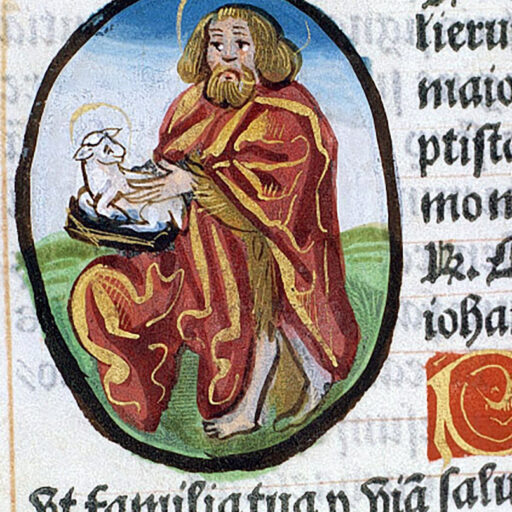 lieru
maio
ptista
mon
R. A
iohan
C
Ut familia tua p hiã salu